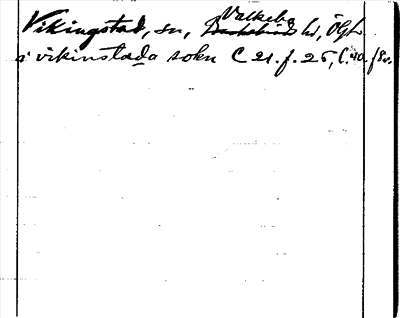 Vikingstad, sn, Valkebo hd, Ögtl.
i vikinstada sokn C 21. f. 25, C. 40. f 8v.